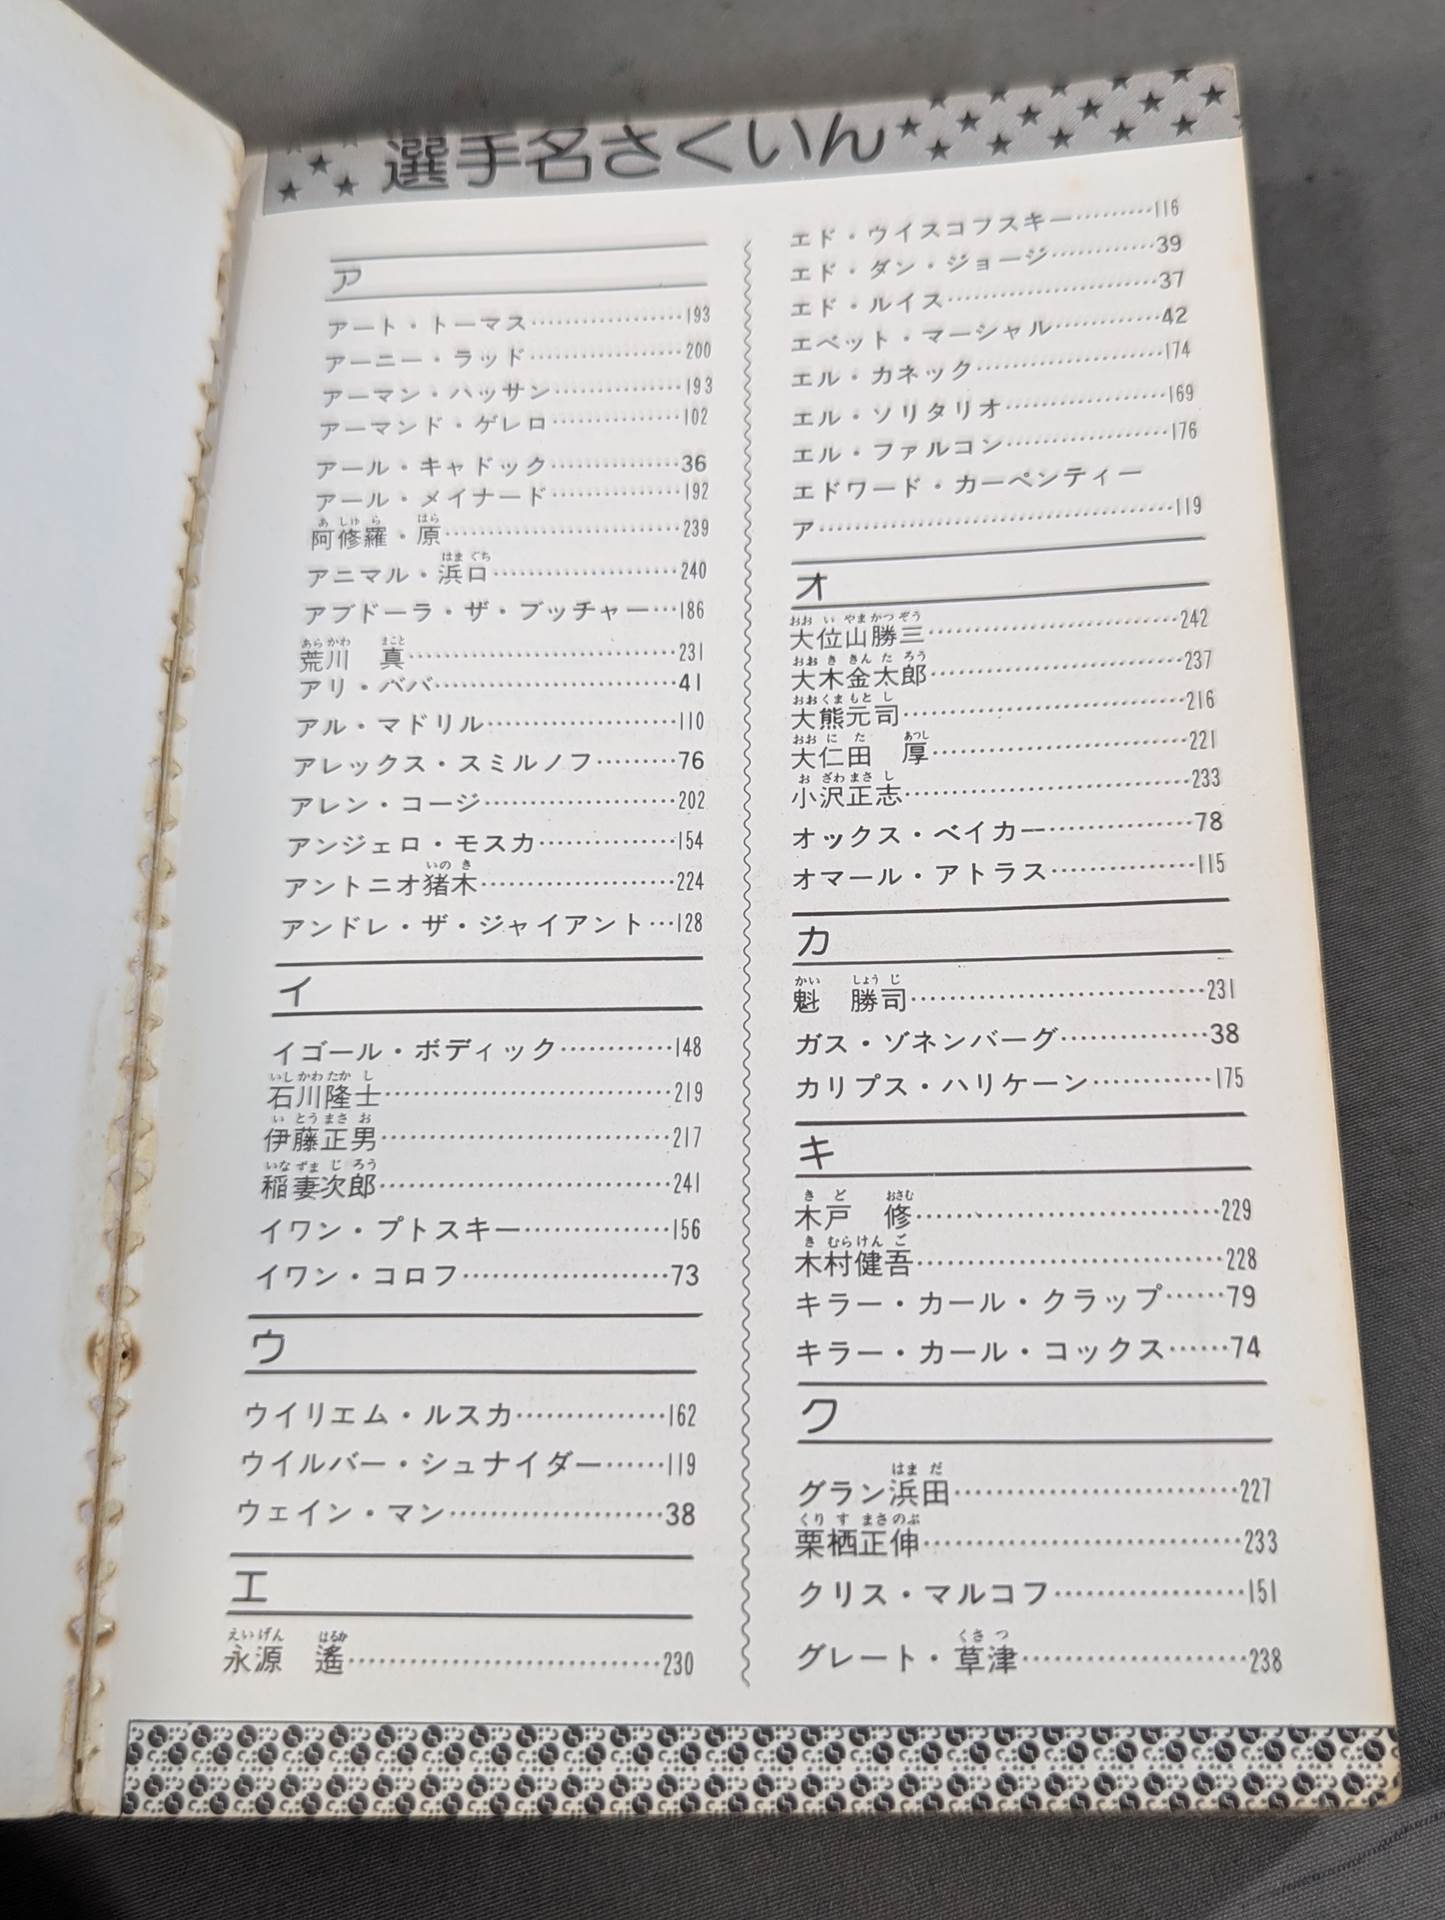 選手名さくいん
ア
アート・トーマス………………193
アーニー・ラッド………………200
アーマン・ハッサン……………193
アーマンド・ゲレロ……………102
アール・キャドック……………36
アール・メイナード……………192
阿修羅・原………………………239
アニマル・浜口…………………240
アブドーラ・ザ・ブッチャー…186
荒川　真…………………………231
アリ・ババ………………………41
アル・マドリル…………………110
アレックス・スミルノフ………76
アレン・コージ…………………202
アンジェロ・モスカ……………154
アントニオ猪木…………………224
アンドレ・ザ・ジャイアント…128
イ
イゴール・ボディック…………148
石川隆士…………………………219
伊藤正男…………………………217
稲妻次郎…………………………241
イワン・プトスキー……………156
イワン・コロフ…………………73
ウ
ウイリエム・ルスカ……………162
ウイルバー・シュナイダー……119
ウェイン・マン…………………38
エ
永源　遙…………………………230
エド・ウイスコフスキー………116
エド・ダン・ジョージ…………39
エド・ルイス……………………37
エベット・マーシャル…………42
エル・カネック…………………174
エル・ソリタリオ………………169
エル・ファルコン………………176
エドワード・カーペンティー
ア…………………………………119
オ
大位山勝三………………………242
大木金太郎………………………237
大熊元司…………………………216
大仁田　厚………………………221
小沢正志…………………………233
オックス・ベイカー……………78
オマール・アトラス……………115
カ
魁　勝司…………………………231
ガス・ゾネンバーグ……………38
カリプス・ハリケーン…………175
キ
木戸　修…………………………229
木村健吾…………………………228
キラー・カール・クラップ……79
キラー・カール・コックス……74
ク
グラン浜田………………………227
栗栖正伸…………………………233
クリス・マルコフ………………151
グレート・草津…………………238